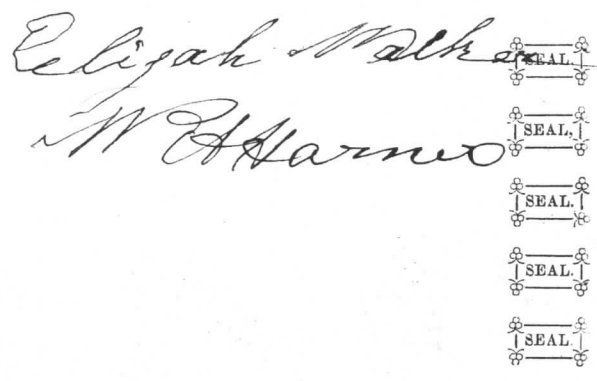 Elijah Walker SEAL.
W H Harned SEAL,
SEAL.
SEAL.
SEAL.